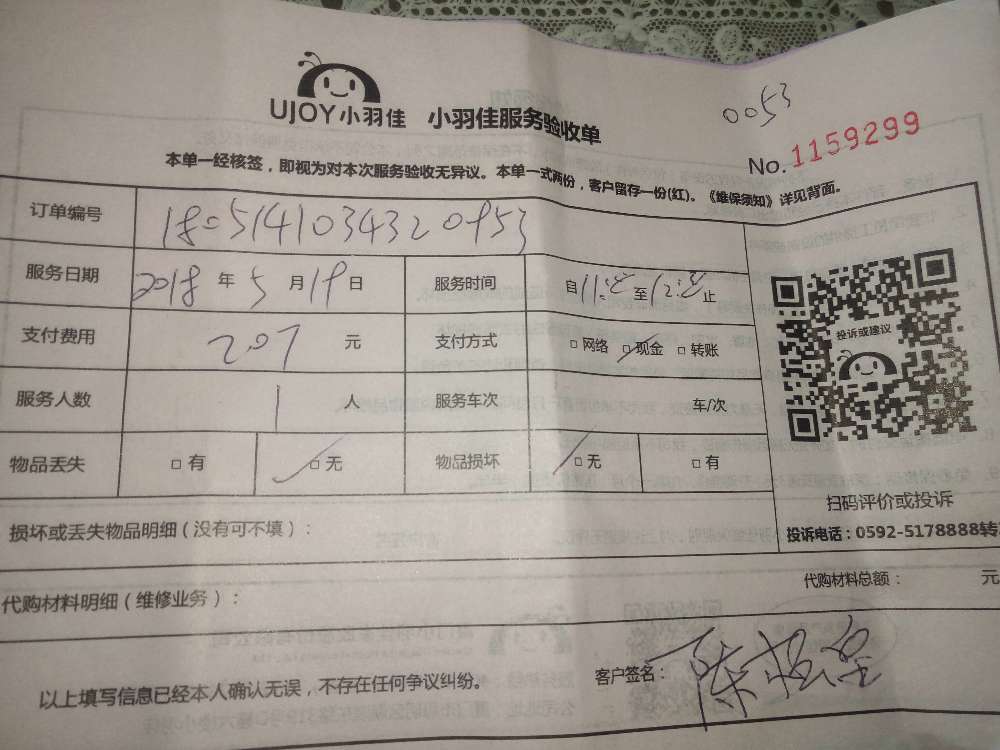 UJOY小羽佳 小羽佳服务验收单
0053
No. 1159299
本单一经核签，即视为对本次服务验收无异议。本单一式两份，客户留存一份(红)。《维保须知》详见背面。
订单编号
服务日期 2018年5月19日 服务时间 自 至 止
支付费用 207 元 支付方式 □网络 □现金 □转账
投诉或建议
服务人数 1 人 服务车次 车/次
物品丢失 □有 □无 物品损坏 □无 □有
扫码评价或投诉
损坏或丢失物品明细（没有可不填）：
投诉电话：0592-5178888转
代购材料明细（维修业务）： 代购材料总额： 元
以上填写信息已经本人确认无误，不存在任何争议纠纷。
客户签名：